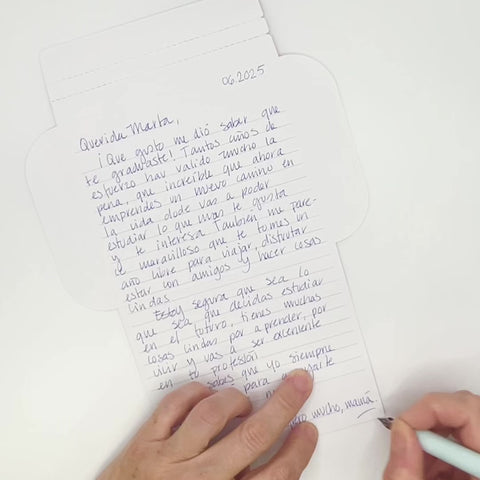 06.2025
Querida Marta,
¡Que gusto me dió saber que
te graduaste! Tantos años de
esfuerzo hav valido mucho la
pena, que increíble que ahora
emprendes un nuevo camino en
la vida dode vas a poder
estudiar lo que mas te gusta
y te interesa. También me pare-
ce maravilloso que te tomes un
año libre para viajar, disfrutar
estar con amigos y hacer cosas
lindas.
Estoy segura que sea lo
que sea que decidas estudiar
en el futuro, tienes muchas
cosas lindas por aprender, por
vivir y vas a ser excelente
en tu profesión
sabes que yo siempre
para
mucho, mamá